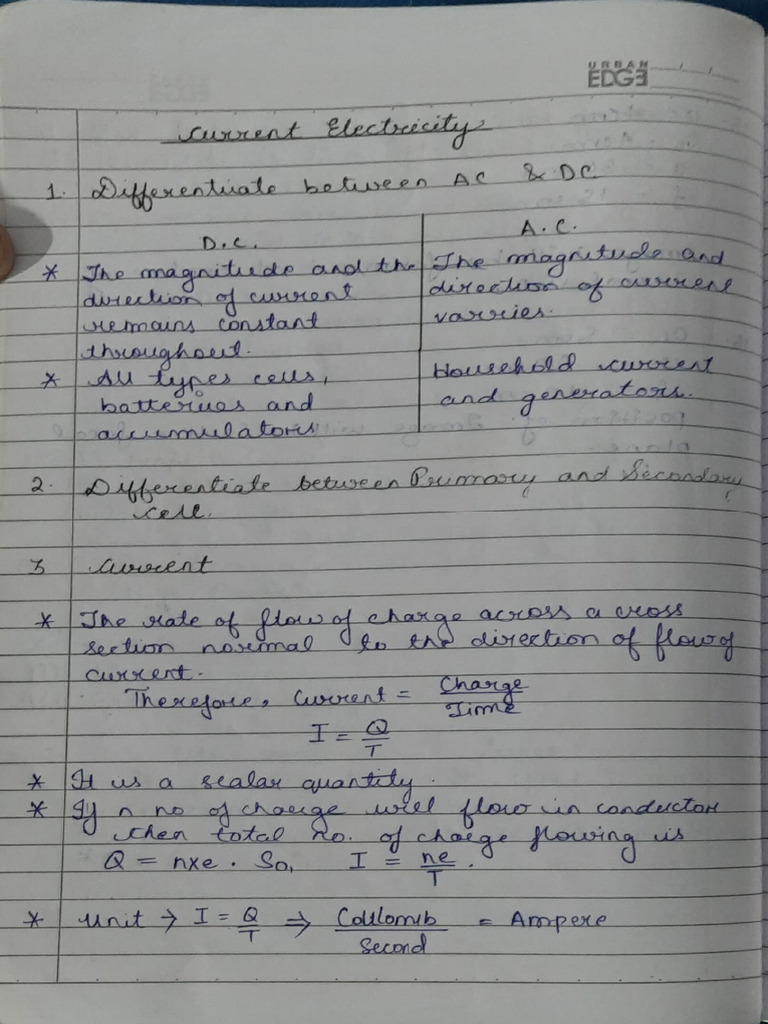 URBAN
EDGE
Current Electricity
1. Differentiate between AC & DC
D.C.
* The magnitude and the
direction of current
remains constant
throughout.
* All types cells,
batteries and
accumulators
A.C.
The magnitude and
direction of current
varries.
Household current
and generators.
2. Differentiate between Primary and Secondary
cell.
3 Current
* The rate of flow of charge across a cross
section normal to the direction of flow of
current.
Therefore, Current = Charge / Time
I = Q / T
* It is a scalar quantity.
* If n no of charge will flow in conductor
then total no. of charge flowing is
Q = nxe. So, I = ne / T.
* Unit → I = Q / T ⇒ Coulomb / Second = Ampere